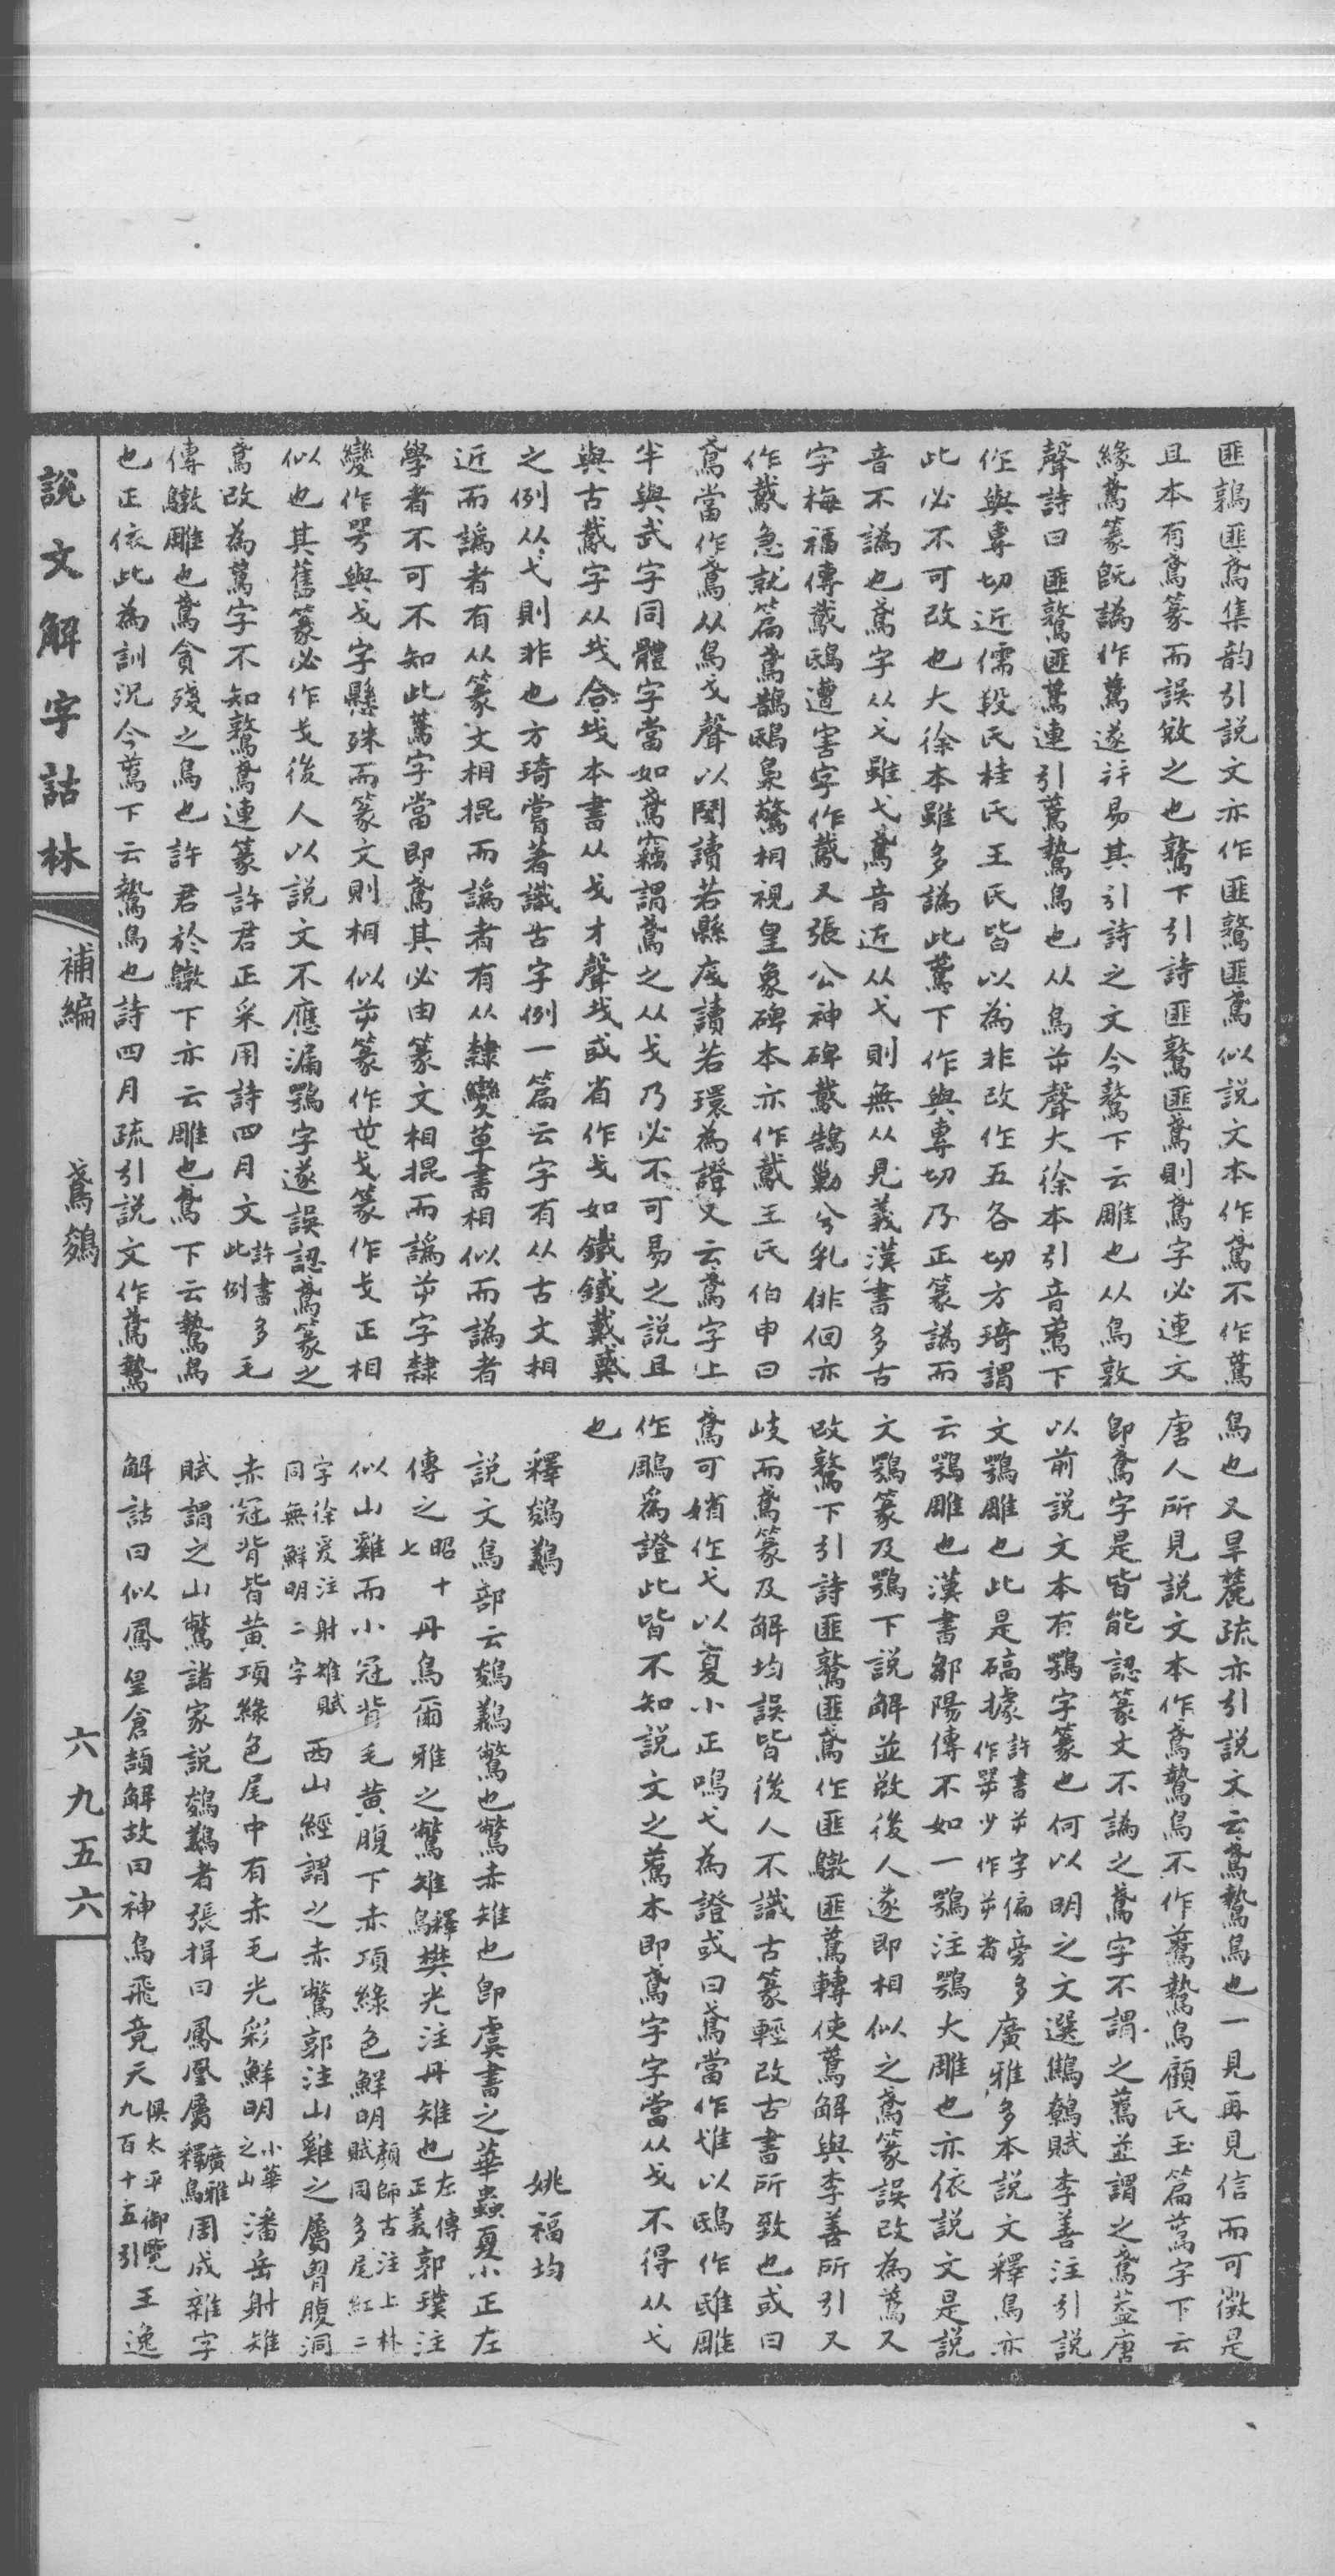 匪鶉匪鳶集韵引説文亦作匪鷻匪鳶似説文本作鳶不作䳒
且本有鳶篆而誤敚之也鷻下引詩匪鷻匪鳶則鳶字必連文
緣鳶篆旣譌作䳒遂并易其引詩之文今鷻下云雕也从鳥敦
聲詩曰匪鷻匪䳒連引䳒鷙鳥也从鳥屰聲大徐本引音䳒下
作與專切近儒段氏桂氏王氏皆以為非改作五各切方琦謂
此必不可改也大徐本雖多譌此䳒下作與專切乃正篆譌而
音不譌也鳶字从弋雖弋鳶音近从弋則無从見義漢書多古
字梅福傳䳒鴟遭害字作䳒又張公神碑䳒鵠勦兮乳俳佪亦
作䳒急就篇鳶鵲鴟梟驚相視皇象碑本亦作䳒王氏伯申曰
鳶當作鳶从鳥戈聲以閱讀若縣㡯讀若環為證又云鳶字上
半與武字同體字當如鳶竊謂鳶之从戈乃必不可易之説且
與古䳒字从𢦏合𢦏本書从戈才聲𢦏或省作戈如鐵鐵戴戴
之例从弋則非也方琦嘗著識古字例一篇云字有从古文相
近而譌者有从篆文相掍而譌者有从隸變草書相似而譌者
學者不可不知此䳒字當即鳶其必由篆文相掍而譌屰字隸
變作咢與戈字懸殊而篆文則相似屰篆作屰戈篆作戈正相
似也其舊篆必作戈後人以説文不應漏鶚字遂誤認鳶篆之
鳶改為䳒字不知鷻鳶連篆許君正采用詩四月文許書多毛此例
傳鷻雕也鳶貪殘之鳥也許君於鷻下亦云雕也鳶下云鷙鳥
也正依此為訓況今䳒下云鷙鳥也詩四月疏引説文作鳶鷙
鳥也又旱麓疏亦引説文云鳶鷙鳥也一見再見信而可徵是
唐人所見説文本作鳶鷙鳥不作䳒鷙鳥顧氏玉篇䳒字下云
即鳶字是皆能認篆文不譌之鳶字不謂之䳒並謂之鳶葢唐
以前説文本有鶚字篆也何以明之文選鷦鷯賦李善注引説
文鶚雕也此是碻據許書屰字偏旁多作咢少作屰者廣雅多本説文釋鳥亦
云鶚雕也漢書鄒陽傳不如一鶚注鶚大雕也亦依説文是説
文鶚篆及鶚下説解並敚後人遂即相似之鳶篆誤改為䳒又
改鷻下引詩匪鷻匪鳶作匪鷻匪䳒轉使䳒解與李善所引又
歧而鳶篆及解均誤皆後人不識古篆輕改古書所致也或曰
鳶可媘作弋以夏小正鳴弋為證或曰鳶當作隿以鴟作䧳雕
作鵰為證此皆不知説文之䳒本即鳶字字當从戈不得从弋
也
釋鵕鸃　姚福均
説文鳥部云鵕鸃鷩也鷩赤雉也即虞書之華蟲夏小正左
傳之昭十七丹鳥爾雅之鷩雉釋鳥樊光注丹雉也左傳正義郭璞注
似山雞而小冠背毛黃腹下赤項綠色鮮明顏師古注上林賦同多尾紅二
字徐爰注射雉賦同無鮮明二字西山經謂之赤鷩郭注山雞之屬胷腹洞
赤冠背皆黃項綠色尾中有赤毛光彩鮮明小華之山潘岳射雉
賦謂之山鷩諸家説鵕鸃者張揖曰鳳凰屬廣雅釋鳥周成雜字
解詁曰似鳳皇倉頡解故曰神鳥飛竟天俱太平御覽九百十五引王逸
説文解字詁林
補編
鳶鵕
六九五六